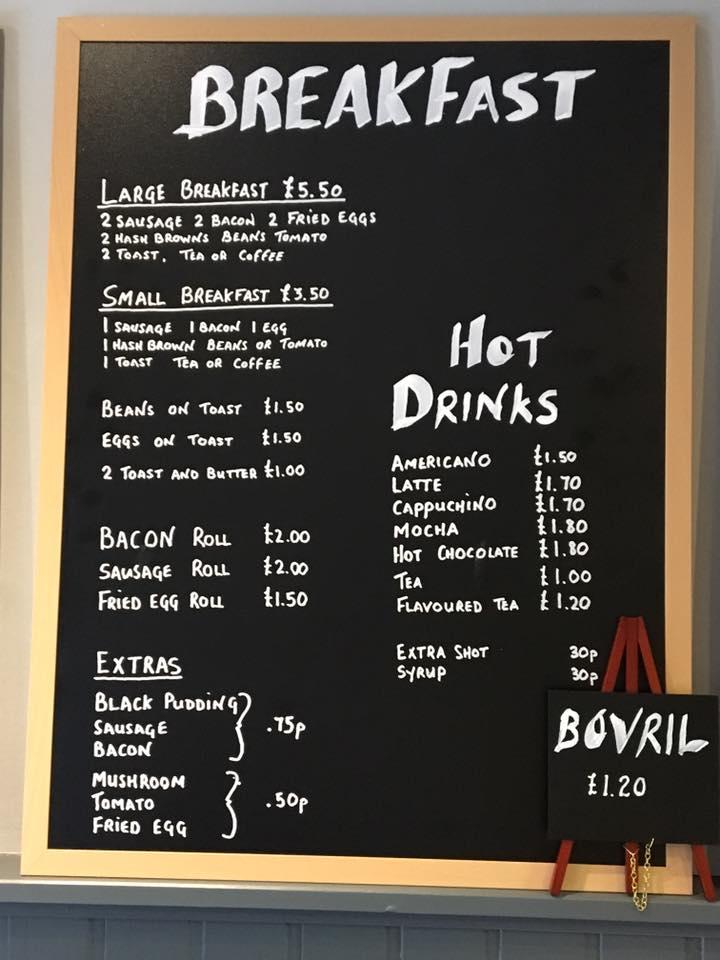 BREAKFAST
LARGE BREAKFAST £5.50
2 SAUSAGE 2 BACON 2 FRIED EGGS
2 HASH BROWNS BEANS TOMATO
2 TOAST, TEA OR COFFEE
SMALL BREAKFAST £3.50
1 SAUSAGE 1 BACON 1 EGG
1 HASH BROWN BEANS OR TOMATO
1 TOAST TEA OR COFFEE
BEANS ON TOAST £1.50
EGGS ON TOAST £1.50
2 TOAST AND BUTTER £1.00
BACON ROLL £2.00
SAUSAGE ROLL £2.00
FRIED EGG ROLL £1.50
EXTRAS
BLACK PUDDING
SAUSAGE .75p
BACON
MUSHROOM
TOMATO .50p
FRIED EGG
HOT
DRINKS
AMERICANO £1.50
LATTE £1.70
CAPPUCHINO £1.70
MOCHA £1.80
HOT CHOCOLATE £1.80
TEA £1.00
FLAVOURED TEA £1.20
EXTRA SHOT 30p
SYRUP 30p
BOVRIL
£1.20